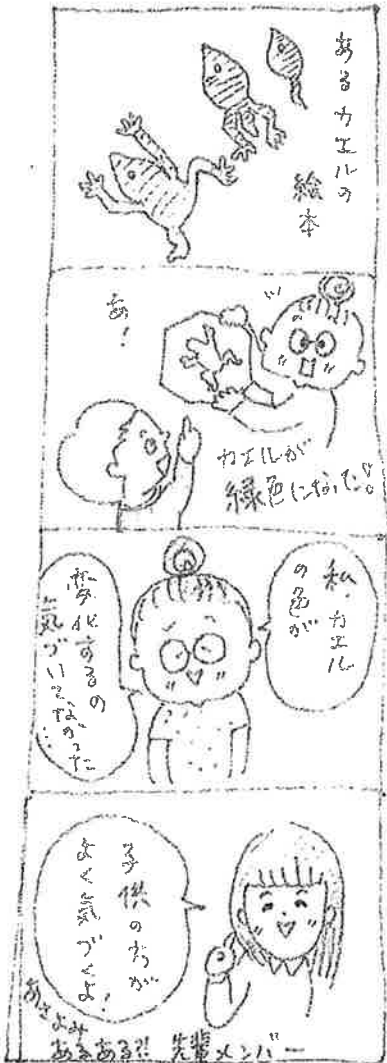 あるカエルの
絵本
あ!
カエルが
緑色になった!!
私、カエル
の色が
変化するの
気づいてなかった…
子供の方が
よく気づくよ!
あさよみ
あるある!!
先輩メンバー